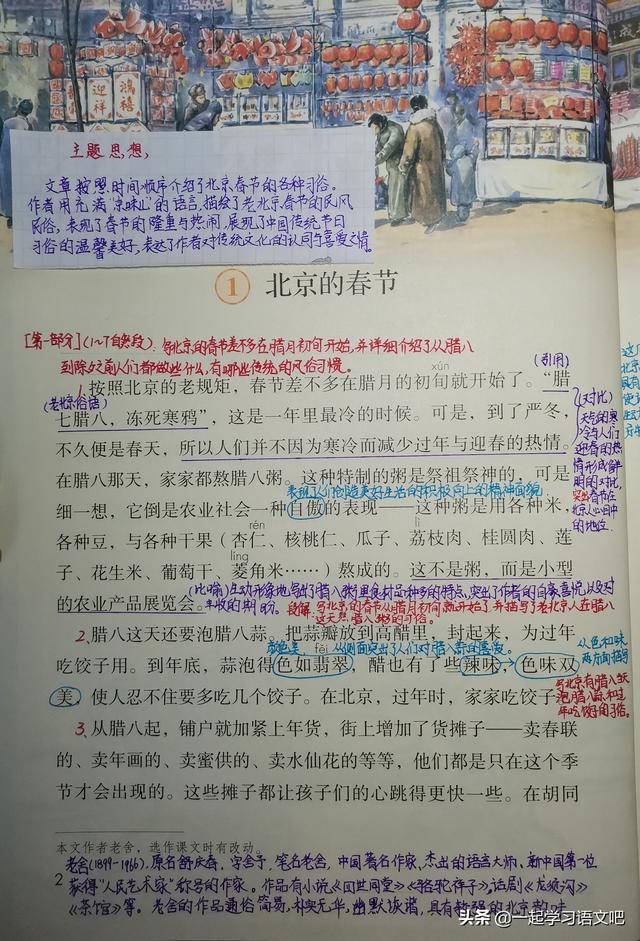 主题思想：
文章按照时间顺序介绍了北京春节的各种习俗。
作者用充满"京味儿"的语言，描绘了老北京春节的民风
民俗，表现了春节的隆重与热闹，展现了中国传统节日
习俗的温馨美好，表达了作者对传统文化的认同与喜爱之情。
迎祥
鸿禧
1 北京的春节
[第一部分](1~7自然段)：写北京的春节差不多在腊月初旬开始，并详细介绍了从腊八
到除夕前人们都做些什么，有哪些传统的风俗习惯。
(引用)
xún
1.按照北京的老规矩，春节差不多在腊月的初旬就开始了。“腊
(老北京俗语)
七腊八，冻死寒鸦”，这是一年里最冷的时候。可是，到了严冬，
不久便是春天，所以人们并不因为寒冷而减少过年与迎春的热情。
(对比)
天气的寒
冷与人们
迎春的热
情形成鲜
明的对比，
突出春节在
北京人心目中
的地位.
在腊八那天，家家都熬腊八粥。这种特制的粥是祭祖祭神的，可是
表现了人们创造美好生活的积极向上的精神面貌
细一想，它倒是农业社会一种自傲的表现——这种粥是用各种米，
rén lì
各种豆，与各种干果（杏仁、核桃仁、瓜子、荔枝肉、桂圆肉、莲
líng
子、花生米、葡萄干、菱角米……）熬成的。这不是粥，而是小型
(比喻)生动形象地写出了腊八粥里食材品种多的特点，突出了作者的自豪喜悦以及对
的农业产品展览会。
丰收的期盼。
段解：写北京的春节从腊月初旬就开始了，并描写了老北京人在腊八
这天熬腊八粥的习俗。
2.腊八这天还要泡腊八蒜。把蒜瓣放到高醋里，封起来，为过年
fěi
从侧面突出了人们对腊八蒜的喜爱。
从色和味
两方面描写
吃饺子用。到年底，蒜泡得色如翡翠，醋也有了些辣味，色味双
美，使人忍不住要多吃几个饺子。在北京，过年时，家家吃饺子。
写北京有腊八这天
泡腊八蒜和过
年吃饺子的习俗。
3.从腊八起，铺户就加紧上年货，街上增加了货摊子——卖春联
的、卖年画的、卖蜜供的、卖水仙花的等等，他们都是只在这个季
节才会出现的。这些摊子都让孩子们的心跳得更快一些。在胡同
本文作者老舍，选作课文时有改动。
老舍(1899-1966)，原名舒庆春，字舍予，笔名老舍，中国著名作家，杰出的语言大师，新中国第一位
获得"人民艺术家"称号的作家。作品有小说《四世同堂》《骆驼祥子》，话剧《龙须沟》
《茶馆》等。老舍的作品通俗简易，朴实无华，幽默诙谐，具有较强的北京韵味
2
头条 @一起学习语文吧